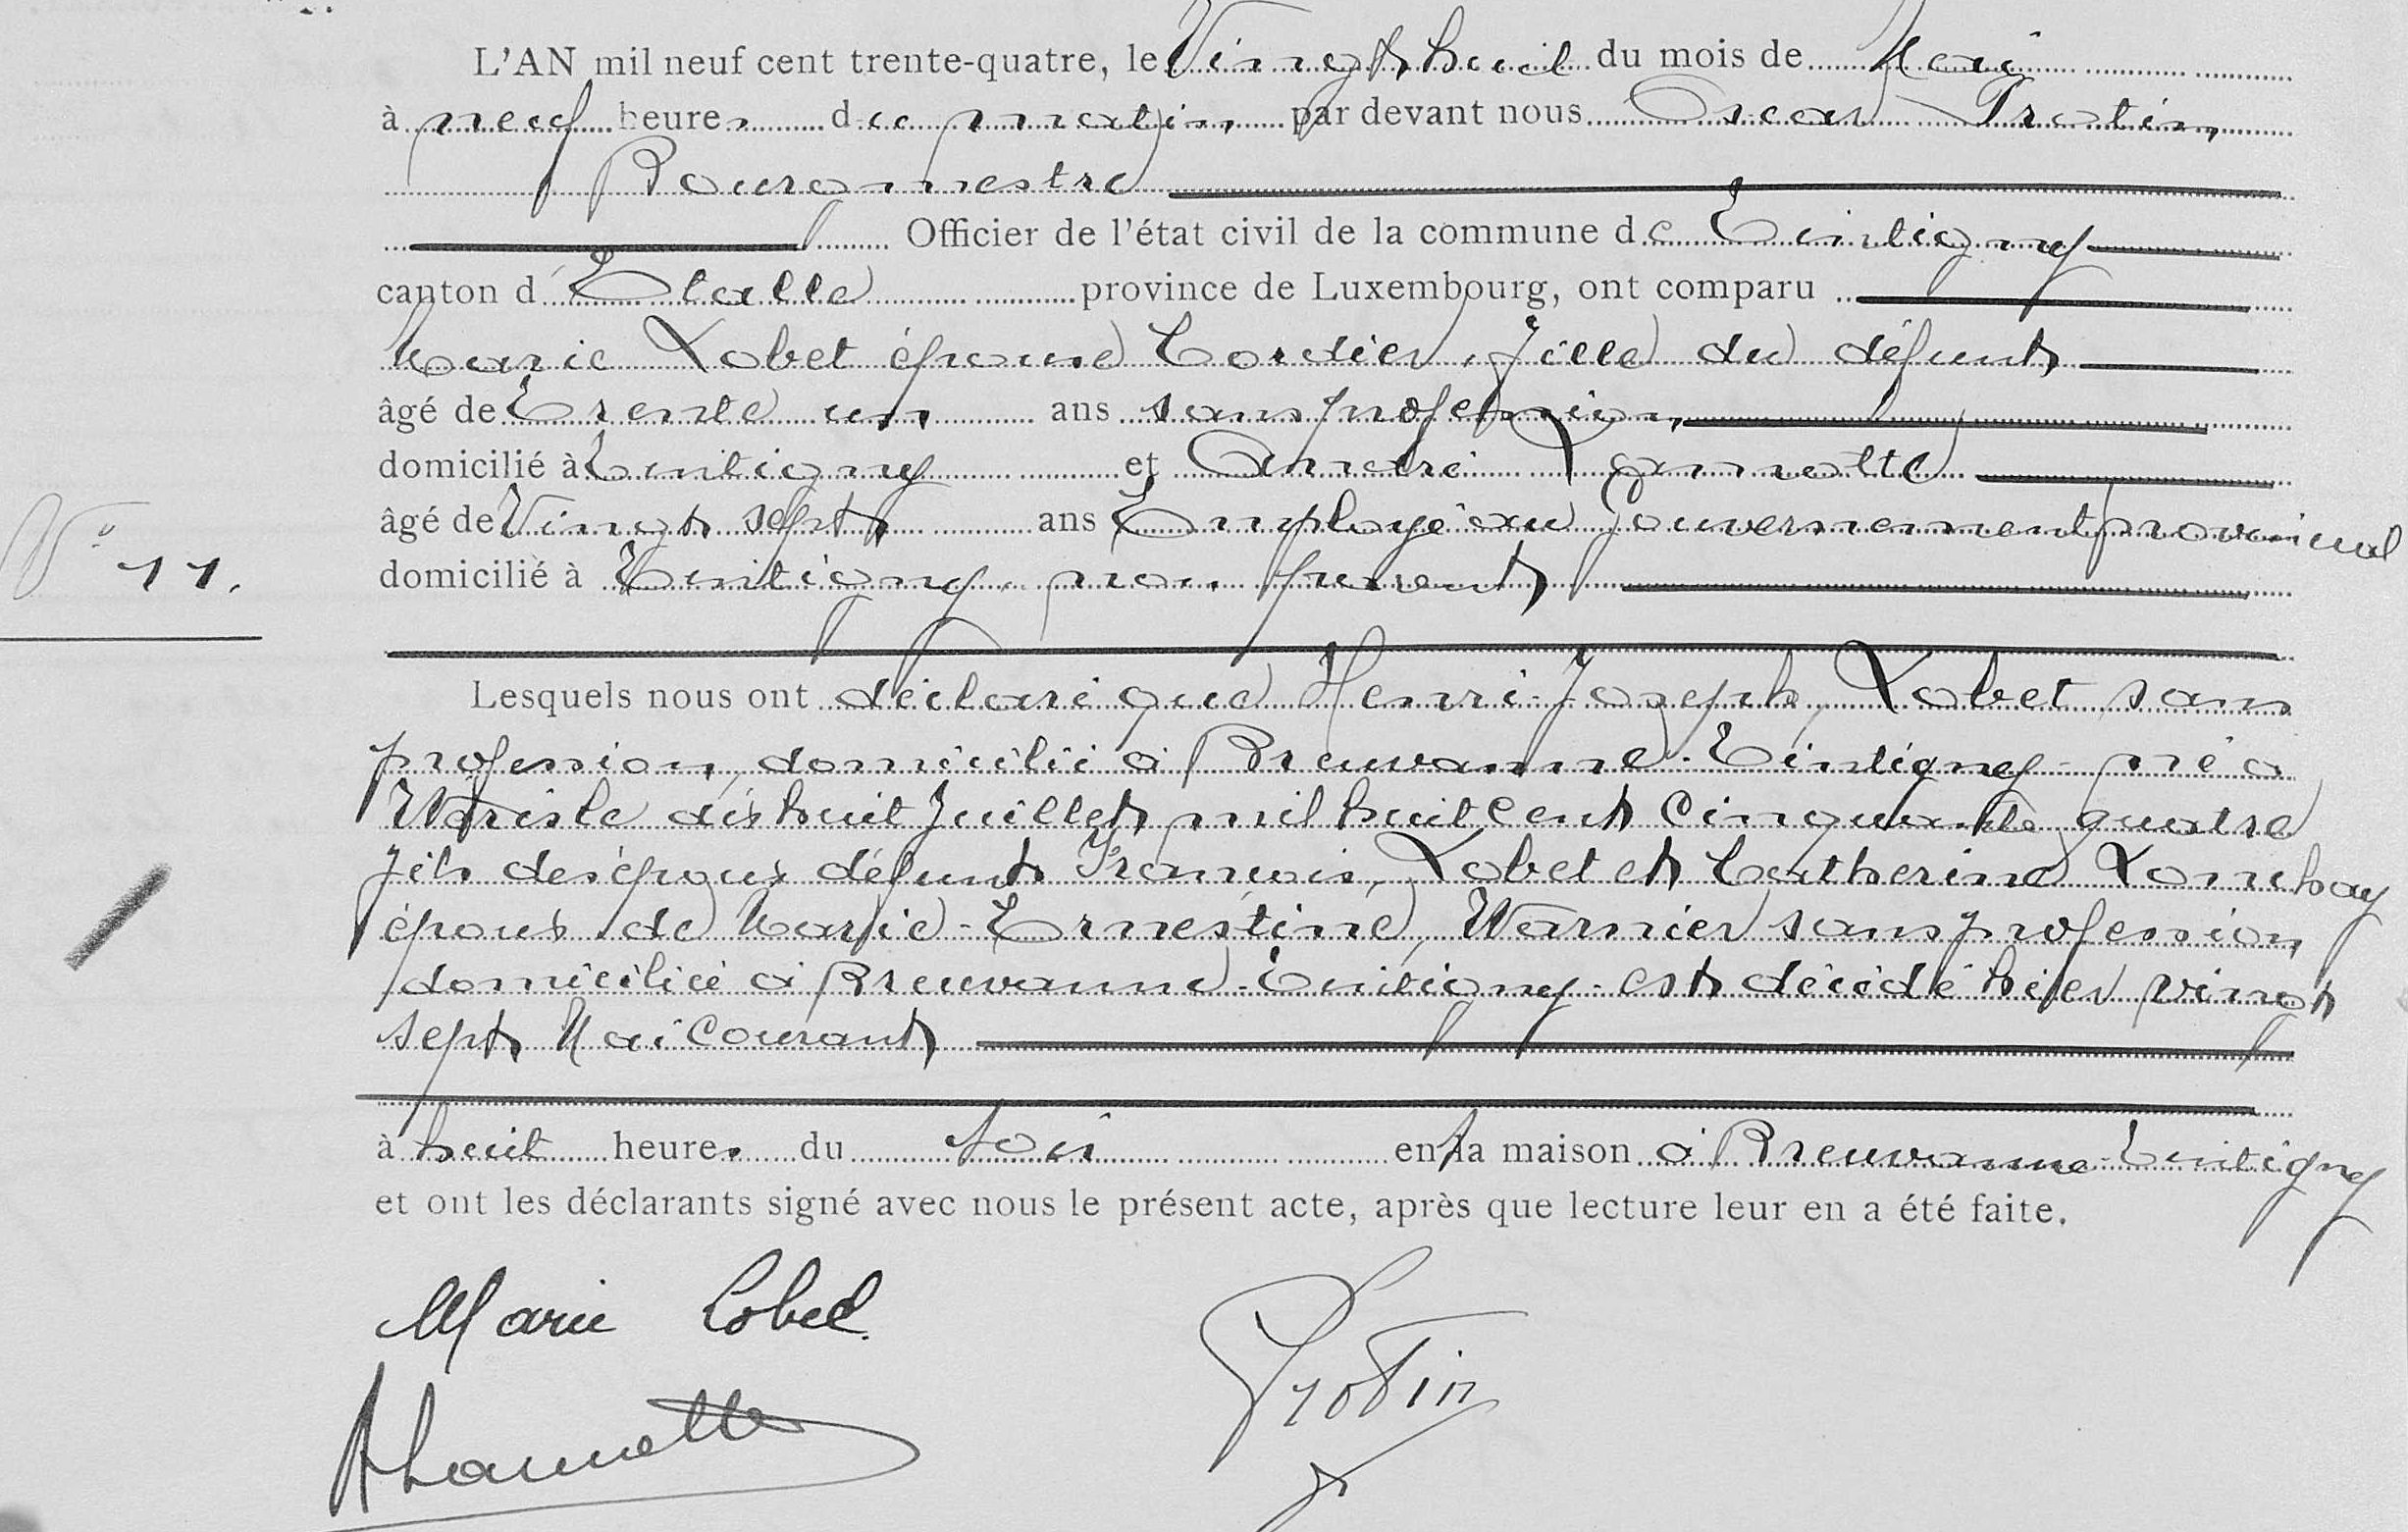 L'AN mil neuf cent trente-quatre, le Vingt huit du mois de Mai
à neuf heures du matin par devant nous Oscar Protin,
Bourgmestre
Officier de l'état civil de la commune de Tintigny
canton d'Etalle province de Luxembourg, ont comparu
Marie Lobet épouse Cordier, fille du défunt
âgé de Trente un ans sans profession,
domicilié à Tintigny et André Lannotte
âgé de Vingt sept ans Employé au Gouvernement provincial
N° 11.
domicilié à Tintigny, non parent
Lesquels nous ont déclaré que Henri-Joseph, Lobet sans
profession, domicilié à Breuvanne-Tintigny - né à
dix huit Juillet mil huit cent cinquante quatre
fils des époux défunts François, Lobet et Catherine Lonchay
époux de Marie-Ernestine, Warnier sans profession,
domiciliée à Breuvanne-Tintigny - est décédé hier vingt
sept Mai courant
à huit heures du soir en sa maison à Breuvanne-Tintigny
et ont les déclarants signé avec nous le présent acte, après que lecture leur en a été faite.
Marie Lobet.
Protin
ALannotte